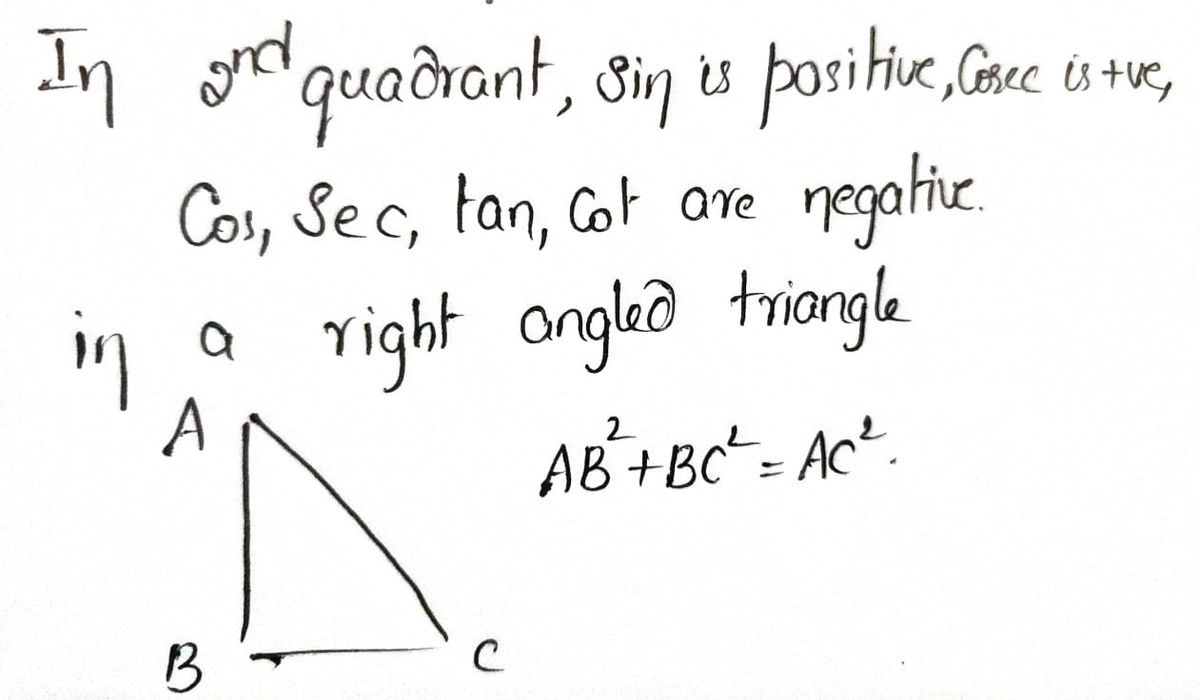 In 2nd quadrant, Sin is positive, Cosec is +ve,
Cos, Sec, tan, Cot are negative.
in a right angled triangle
A
AB²+BC²=AC².
B C